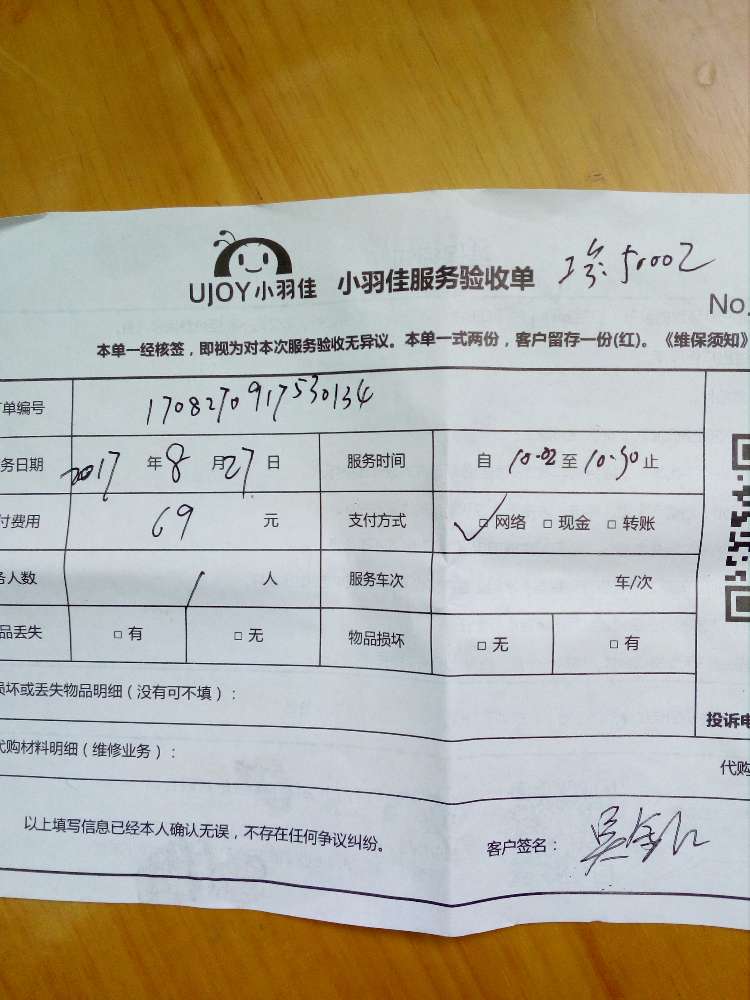 UJOY小羽佳 小羽佳服务验收单 50002
No.
本单一经核签，即视为对本次服务验收无异议。本单一式两份，客户留存一份(红)。《维保须知》
单编号 1708270917530134
务日期 2017 年 8 月 27 日 服务时间 自 10.02 至 10.30 止
付费用 69 元 支付方式 ✓□网络 □现金 □转账
务人数 1 人 服务车次 车/次
品丢失 □有 □无 物品损坏 □无 □有
损坏或丢失物品明细（没有可不填）：
投诉电
代购材料明细（维修业务）：
代购
以上填写信息已经本人确认无误，不存在任何争议纠纷。 客户签名：